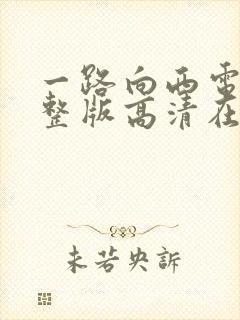 一路向西电
整版高清在
未若央訴